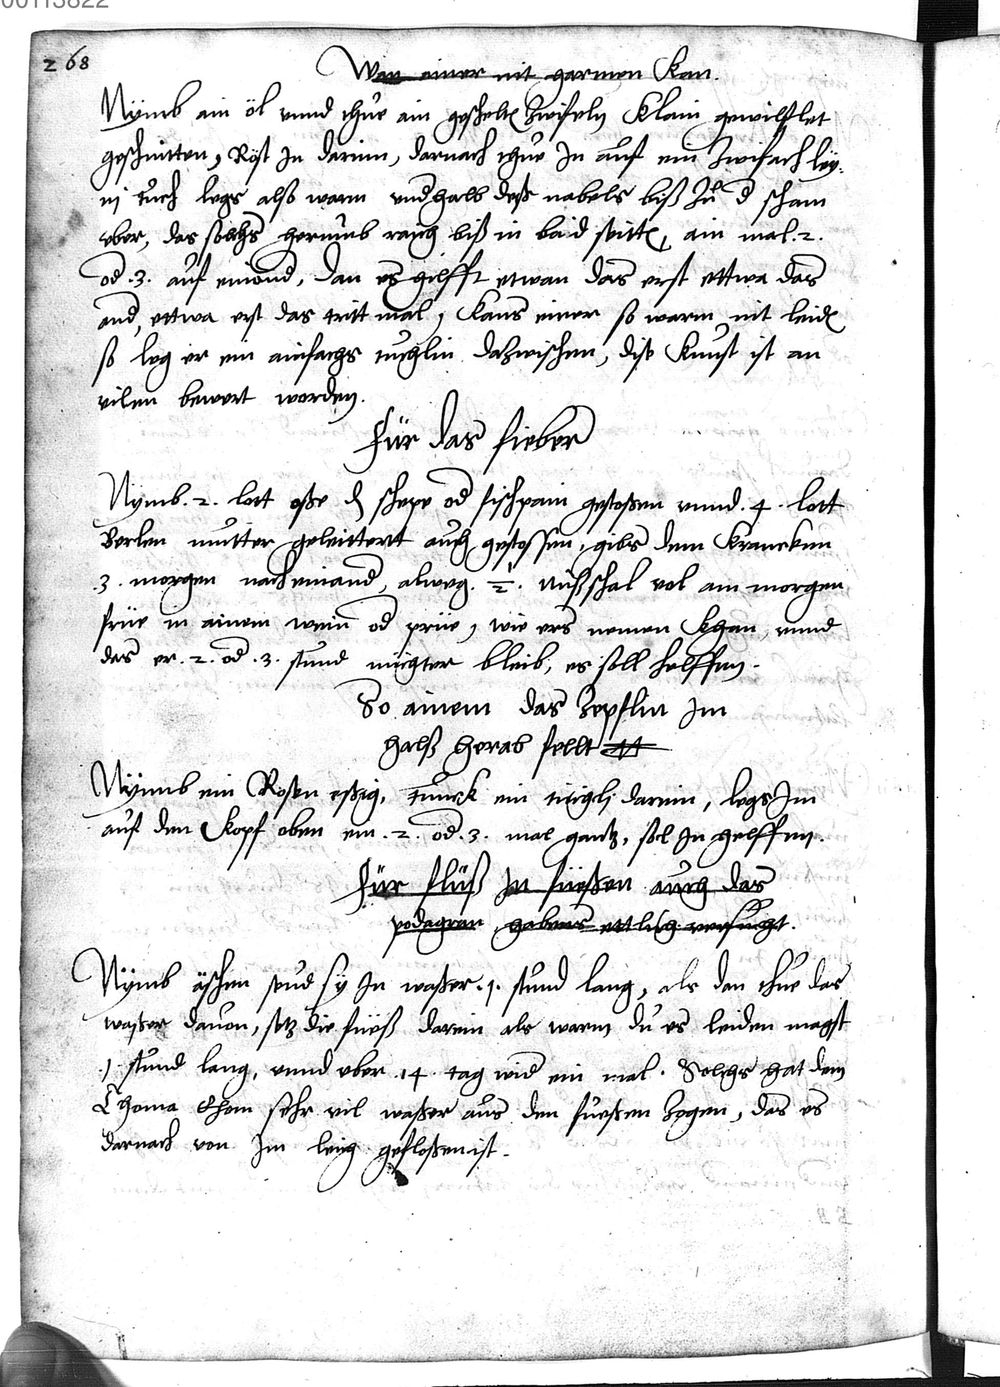 00113822
268
Wan einer nit harmen Kan.
Nÿmb ain öl vnnd thue ain geschelte Zwifeln Klain gewirflet
geschnitten, Röst In darinn, darnach thue In auf ein Zwifach ley-
ni tuch legs alß warm vndhalb deß nabels biß Zu d scham
vber, das solchs herumb raich biß in baid seitte, ain mal .2.
od .3. auf einand, dan es hilfft etwan das erst ettwa das
and, ettwa erst das tritt mal, Kans einer so warm nit leide
so leg er ein ainfachs tuchlin dazwischen, dise Kunst ist an
vilen bewert worden.
Für das fieber
Nÿmb .2. lott oße d schepe od fischpain gestoßen vnnd .4. lott
Berlen mutter geleittert auch gestossen, gibs dem Krancken
.3. morgen nach einand, alweg. ½. Nußschal vol am morgen
frue in ainem wein od prüe, wie ers nemen Khan, vnnd
das er .2. od .3. stund nüchter bleib, es soll helffen.
So ainem das Zepflin Im
halß herab fellt
Nÿmb ein Rosen eßig, tunck ein tüchli darein, legs Im
auf den Kopf oben ein .2. od .3. mal gantz, sol In helffen.
Für flüß In füeßen auch das
podagran habens ettlich versucht.
Nÿmb äschen seud sÿ In waßer .1. stund lang, als dan thue das
waßer dauon, setz die füeß darein als warm du es leiden magst
.1. stund lang, vnnd vber .14. tag wid ein mal. Solchs hat dem
Thoma Ehem sehr vil waßer aus den fueßen Zogen, das es
darnach von Im leuig gefloßen ist.